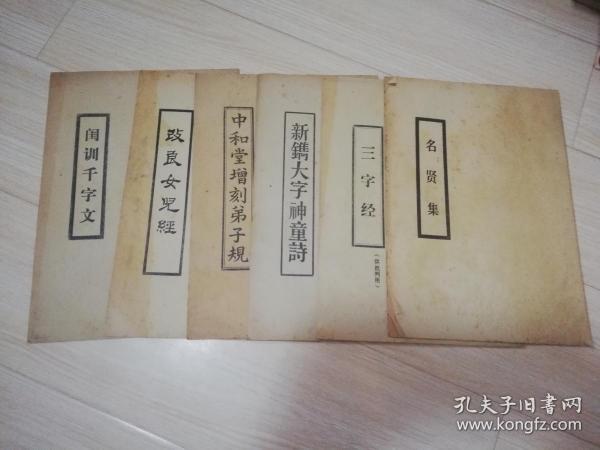 闺训千字文
改良女儿經
中和堂增刻弟子規
新鐫大字神童詩
三字经
（供批判用）
名贤集
孔夫子旧书网
www.kongfz.com